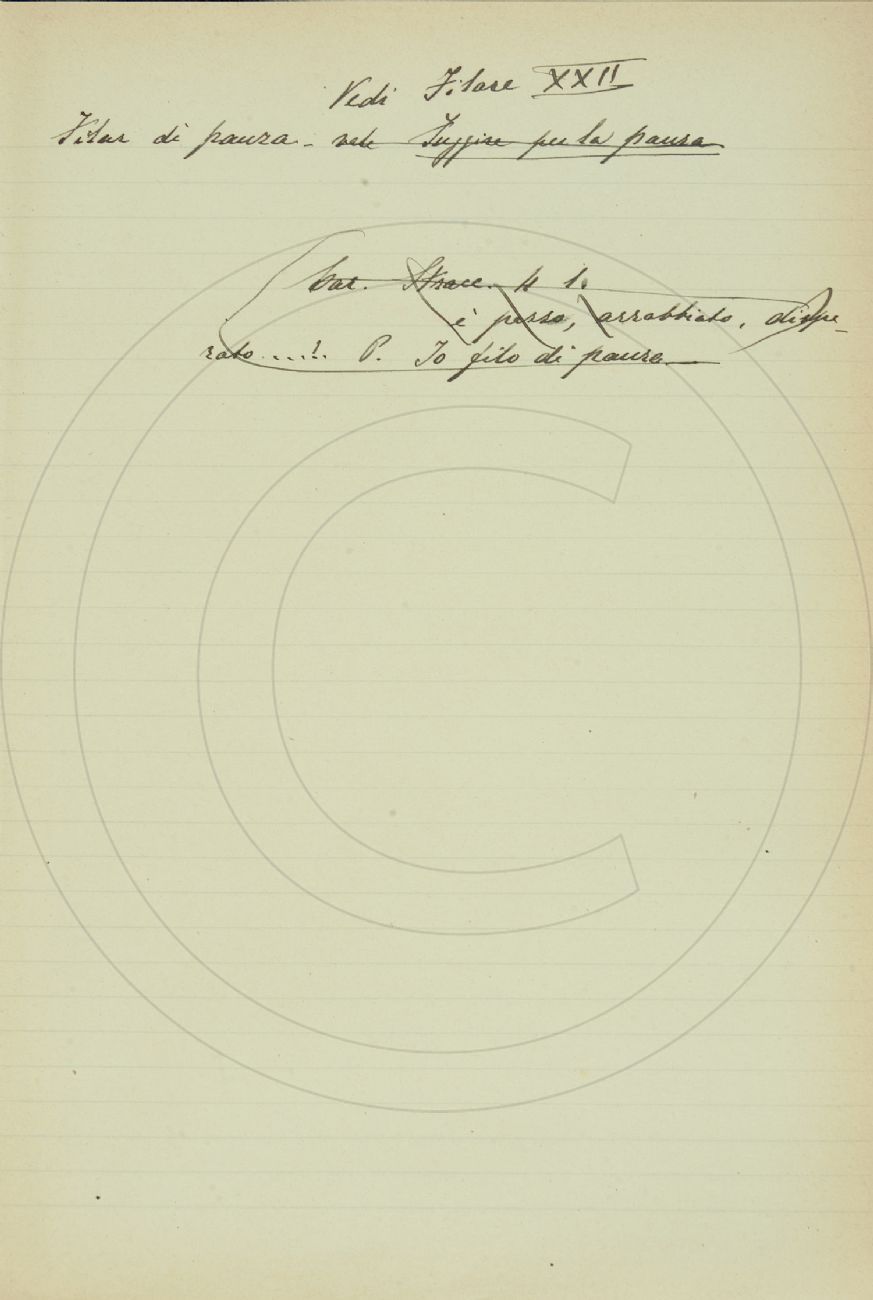 Vedi Filare XXII
Filar di paura - vale Fuggire per la paura
Bar. Stracc. 4 1.
è perso, arrabbiato, dispe-
rato....! P. Io filo di paura